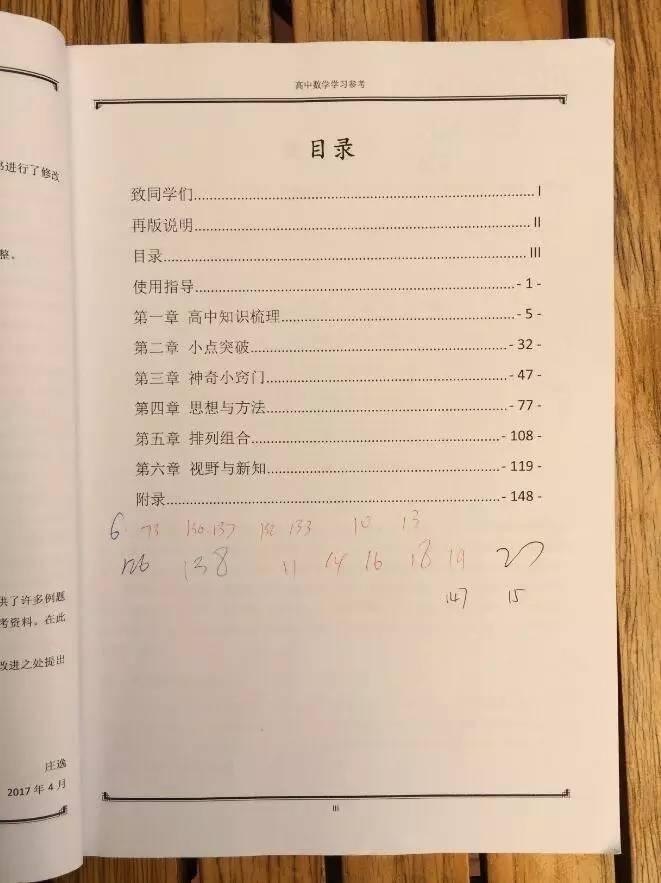 书进行了修改
整。
供了许多例题
考资料。在此
改进之处提出
庄逸
2017 年 4 月
高中数学学习参考
目录
致同学们 I
再版说明 II
目录 III
使用指导 - 1 -
第一章 高中知识梳理 - 5 -
第二章 小点突破 - 32 -
第三章 神奇小窍门 - 47 -
第四章 思想与方法 - 77 -
第五章 排列组合 - 108 -
第六章 视野与新知 - 119 -
附录 - 148 -
6 73 130 137 132 133 10 13
126 138 11 14 16 18 19
147 15
III